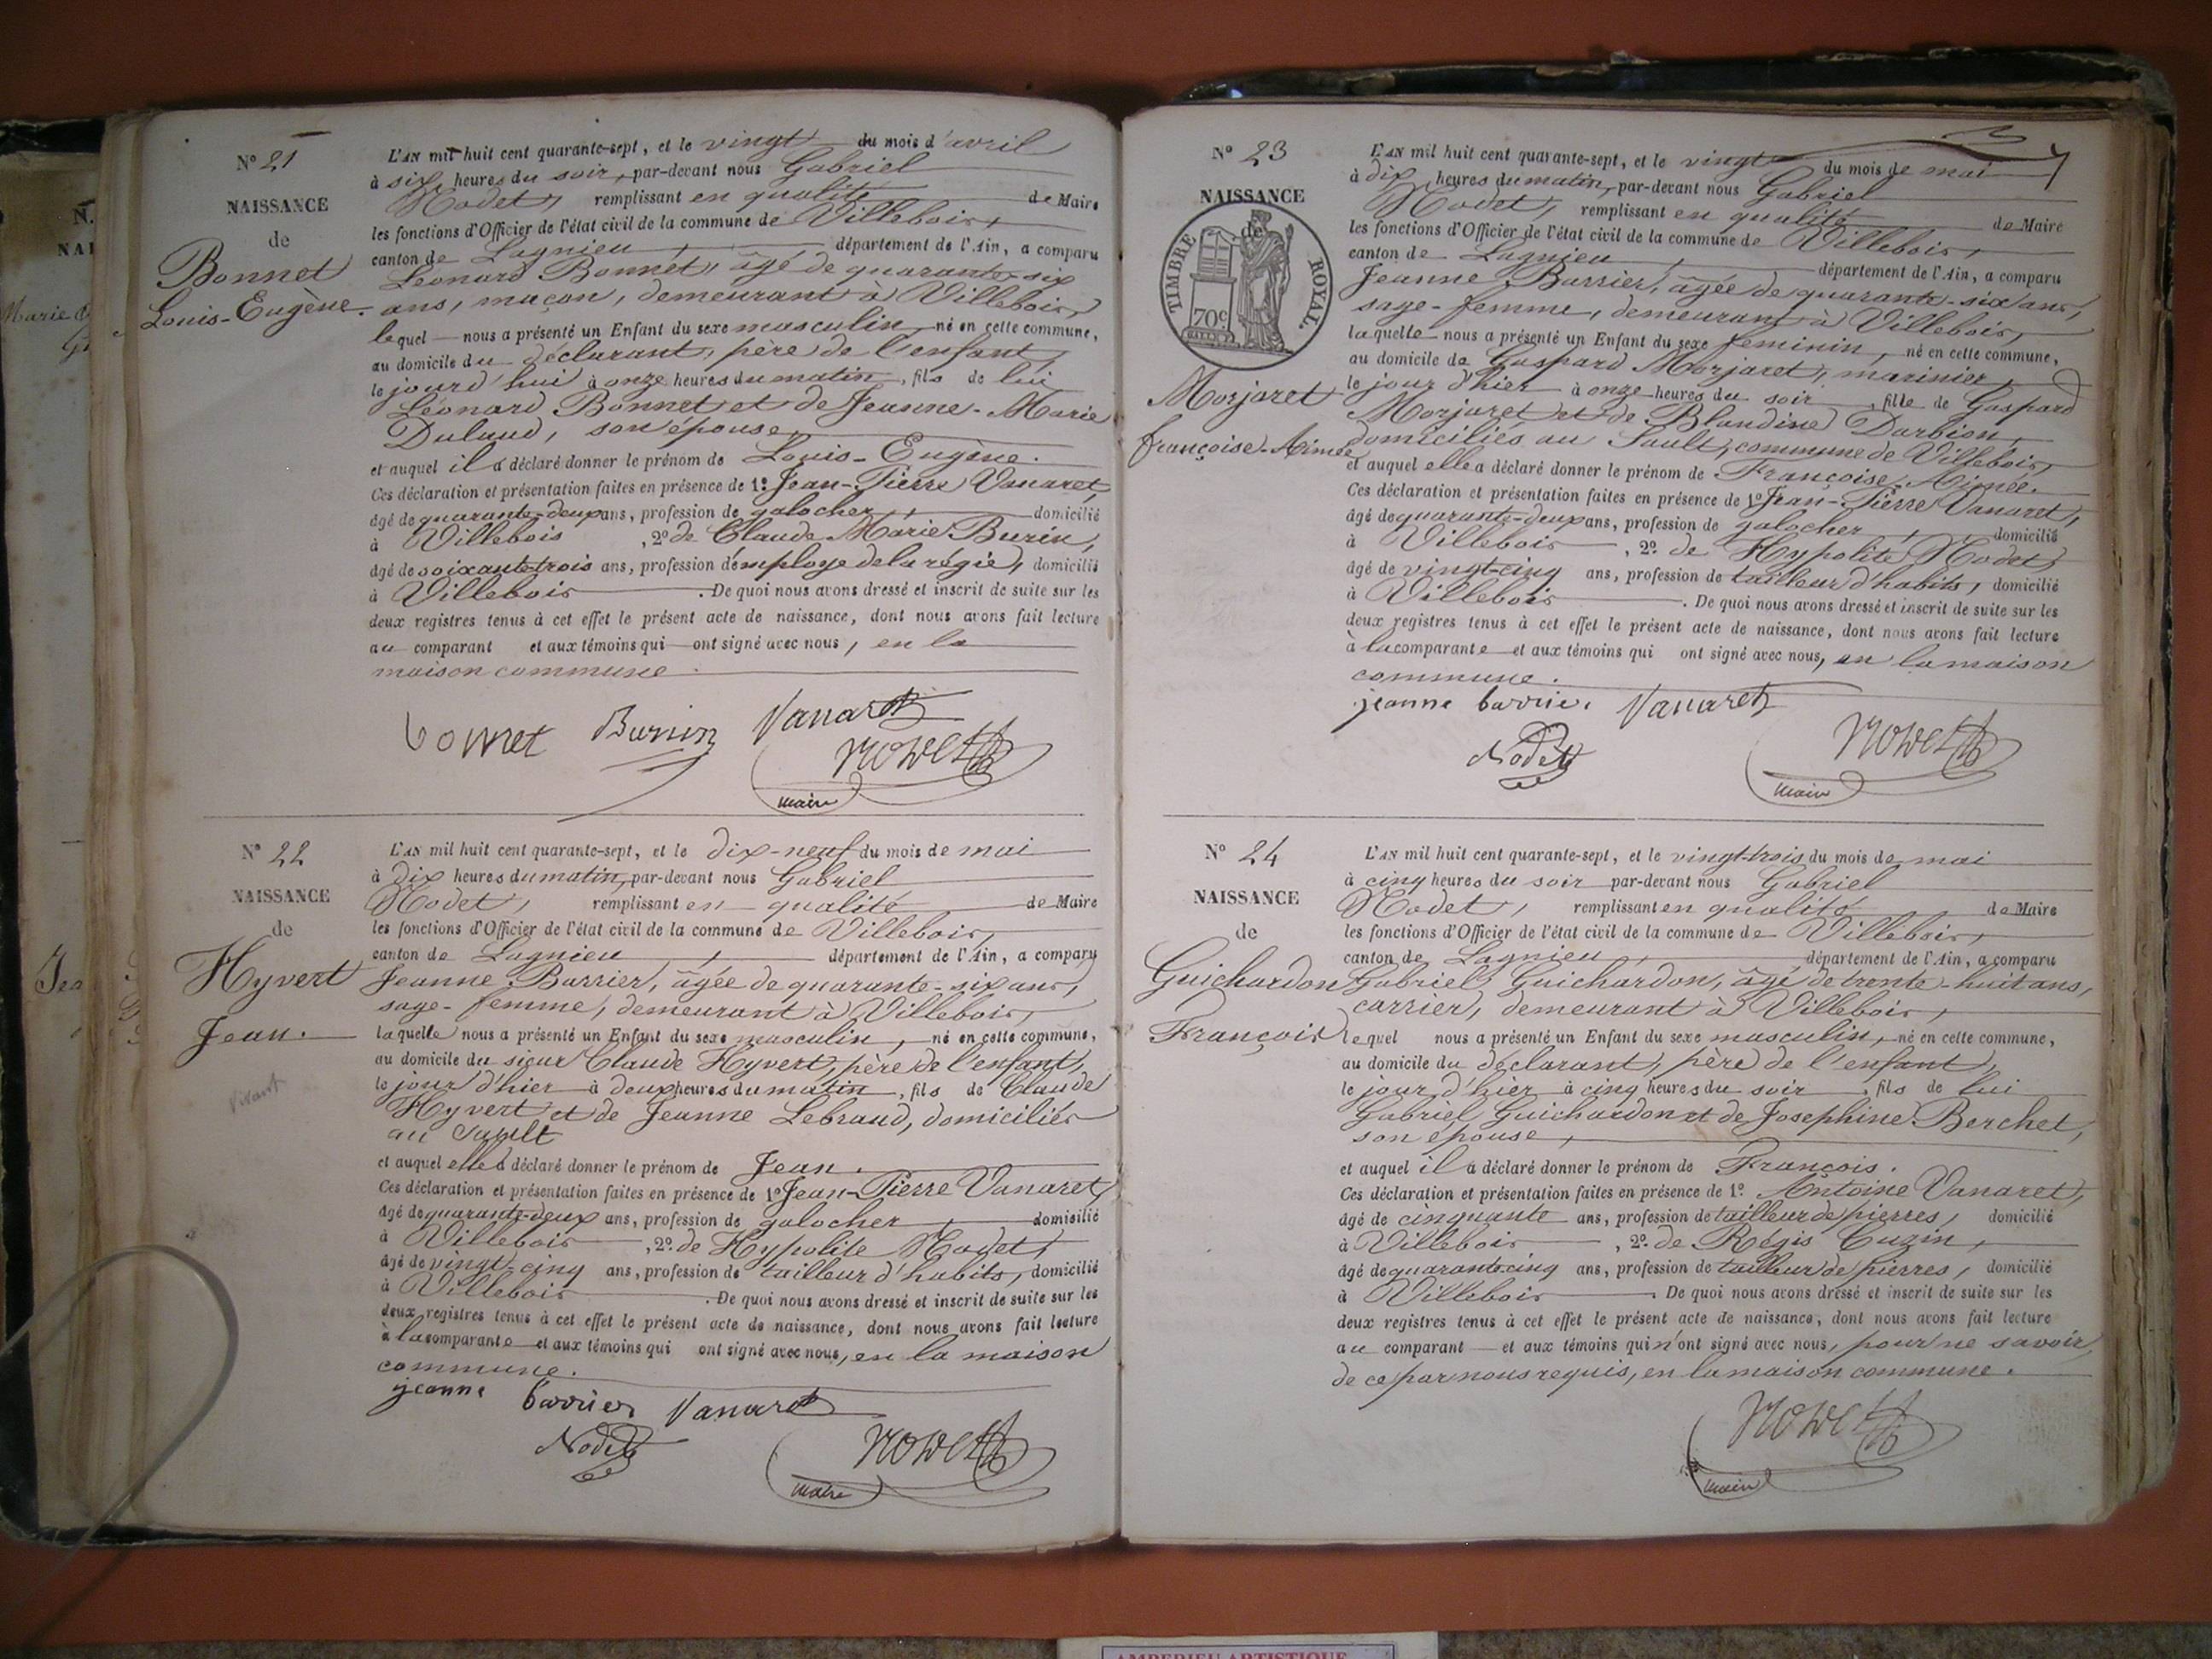 N° 21
NAISSANCE
de
Bonnet
Louis-Eugène.
L'AN mil huit cent quarante-sept, et le vingt du mois d'avril
à six heures du soir, par-devant nous Gabriel
Nodet, remplissant en qualité de Maire
les fonctions d'Officier de l'état civil de la commune de Villebois,
canton de Lagnieu, département de l'Ain, a comparu
Léonard Bonnet, âgé de quarante-six
ans, maçon, demeurant à Villebois,
lequel nous a présenté un Enfant du sexe masculin, né en cette commune,
au domicile du déclarant, père de l'enfant,
le jourd'hui à onze heures du matin, fils de lui
Léonard Bonnet et de Jeanne-Marie
Dulaud, son épouse,
et auquel il a déclaré donner le prénom de Louis-Eugène.
Ces déclaration et présentation faites en présence de 1° Jean-Pierre Vanaret,
âgé de quarante-deux ans, profession de galocher, domicilié
à Villebois, 2° de Claude Marie Burin,
âgé de soixante-trois ans, profession d'employe de la régie, domicilié
à Villebois. De quoi nous avons dressé et inscrit de suite sur les
deux registres tenus à cet effet le présent acte de naissance, dont nous avons fait lecture
au comparant et aux témoins qui ont signé avec nous, en la
maison commune.
bonnet Burin Vanaret
Nodet
maire
N° 22
NAISSANCE
de
Hyvert
Jean.
vivant
L'AN mil huit cent quarante-sept, et le dix-neuf du mois de mai
à dix heures du matin, par-devant nous Gabriel
Nodet, remplissant en qualité de Maire
les fonctions d'Officier de l'état civil de la commune de Villebois,
canton de Lagnieu, département de l'Ain, a comparu
Jeanne Barrier, âgée de quarante-six ans,
sage-femme, demeurant à Villebois,
laquelle nous a présenté un Enfant du sexe masculin, né en cette commune,
au domicile du sieur Claude Hyvert, père de l'enfant,
le jour d'hier à deux heures du matin, fils de Claude
Hyvert et de Jeanne Lebraud, domiciliés
au Sault
et auquel elle a déclaré donner le prénom de Jean.
Ces déclaration et présentation faites en présence de 1° Jean-Pierre Vanaret,
âgé de quarante-deux ans, profession de galocher, domicilié
à Villebois, 2° de Hypolite Nodet,
âgé de vingt-cinq ans, profession de tailleur d'habits, domicilié
à Villebois. De quoi nous avons dressé et inscrit de suite sur les
deux registres tenus à cet effet le présent acte de naissance, dont nous avons fait lecture
à la comparante et aux témoins qui ont signé avec nous, en la maison
commune.
jeanne barrier Vanaret
Nodet Nodet
maire
N° 23
NAISSANCE
de
TIMBRE ROYAL.
70c
Morjaret
françoise-Aimée
L'AN mil huit cent quarante-sept, et le vingt du mois de mai
à dix heures du matin, par-devant nous Gabriel
Nodet, remplissant en qualité de Maire
les fonctions d'Officier de l'état civil de la commune de Villebois,
canton de Lagnieu, département de l'Ain, a comparu
Jeanne Barrier, âgée de quarante-six ans,
sage-femme, demeurant à Villebois,
laquelle nous a présenté un Enfant du sexe féminin, né en cette commune,
au domicile de Gaspard Morjaret, marinier,
le jour d'hier à onze heures du soir, fille de Gaspard
Morjaret et de Blandine Darbion,
domiciliés au Sault, commune de Villebois,
et auquel elle a déclaré donner le prénom de Françoise-Aimée.
Ces déclaration et présentation faites en présence de 1° Jean-Pierre Vanaret,
âgé de quarante-deux ans, profession de galocher, domicilié
à Villebois, 2° de Hypolite Nodet,
âgé de vingt-cinq ans, profession de tailleur d'habits, domicilié
à Villebois. De quoi nous avons dressé et inscrit de suite sur les
deux registres tenus à cet effet le présent acte de naissance, dont nous avons fait lecture
à la comparante et aux témoins qui ont signé avec nous, en la maison
commune.
jeanne barrier Vanaret
Nodet Nodet
maire
N° 24
NAISSANCE
de
Guichardon
François
L'AN mil huit cent quarante-sept, et le vingt-trois du mois de mai
à cinq heures du soir par-devant nous Gabriel
Nodet, remplissant en qualité de Maire
les fonctions d'Officier de l'état civil de la commune de Villebois,
canton de Lagnieu, département de l'Ain, a comparu
Gabriel Guichardon, âgé de trente-huit ans,
carrier, demeurant à Villebois,
lequel nous a présenté un Enfant du sexe masculin, né en cette commune,
au domicile du déclarant, père de l'enfant,
le jour d'hier à cinq heures du soir, fils de lui
Gabriel Guichardon et de Josephine Berchet,
son épouse,
et auquel il a déclaré donner le prénom de François.
Ces déclaration et présentation faites en présence de 1° Antoine Vanaret,
âgé de cinquante ans, profession de tailleur de pierres, domicilié
à Villebois, 2° de Régis Cuzin,
âgé de quarante cinq ans, profession de tailleur de pierres, domicilié
à Villebois. De quoi nous avons dressé et inscrit de suite sur les
deux registres tenus à cet effet le présent acte de naissance, dont nous avons fait lecture
au comparant et aux témoins qui n'ont signé avec nous, pour ne savoir,
de ce par nous requis, en la maison commune.
Nodet
maire
AMPERIEU ARTISTIQUE